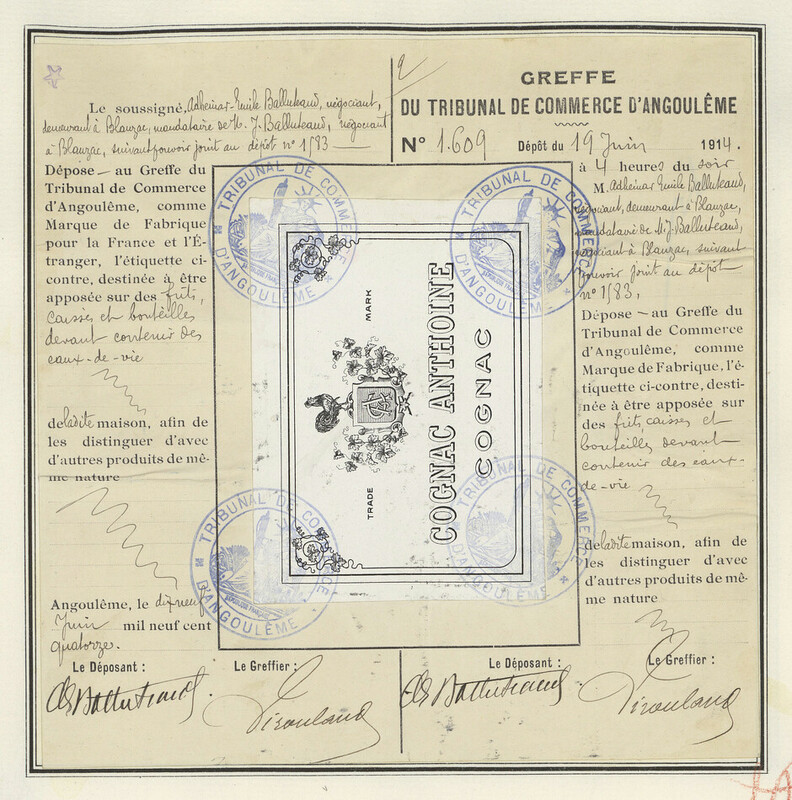 Le soussigné, Adhémar-Emile Balluteaud, négociant,
demeurant à Blanzac, mandataire de M. J. Balluteaud, négociant
à Blanzac, suivant pouvoir joint au dépôt n° 1583 —
Dépose — au Greffe du
Tribunal de Commerce
d'Angoulême, comme
Marque de Fabrique
pour la France et l'É-
tranger, l'étiquette ci-
contre, destinée à être
apposée sur des fûts,
caisses et bouteilles
devant contenir des
eaux-de-vie
de ladite maison, afin de
les distinguer d'avec
d'autres produits de mê-
me nature
Angoulême, le dix neuf
Juin mil neuf cent
quatorze.
Le Déposant :
Le Greffier :
GREFFE
DU TRIBUNAL DE COMMERCE D'ANGOULÊME
N° 1.609 Dépôt du 19 Juin 1914.
à 4 heures du soir
M. Adhémar Emile Balluteaud,
négociant, demeurant à Blanzac,
mandataire de M. J. Balluteaud,
négociant à Blanzac, suivant
pouvoir joint au dépôt
n° 1583,
Dépose — au Greffe du
Tribunal de Commerce
d'Angoulême, comme
Marque de Fabrique, l'é-
tiquette ci-contre, desti-
née à être apposée sur
des fûts, caisses et
bouteilles devant
contenir des eaux-
de-vie
de ladite maison, afin de
les distinguer d'avec
d'autres produits de mê-
me nature
Le Déposant :
Le Greffier :
TRADE MARK
COGNAC ANTHOINE
COGNAC
TRIBUNAL DE COMMERCE
D'ANGOULÊME
TRIBUNAL DE COMMERCE
D'ANGOULÊME
TRIBUNAL DE COMMERCE
D'ANGOULÊME
TRIBUNAL DE COMMERCE
D'ANGOULÊME